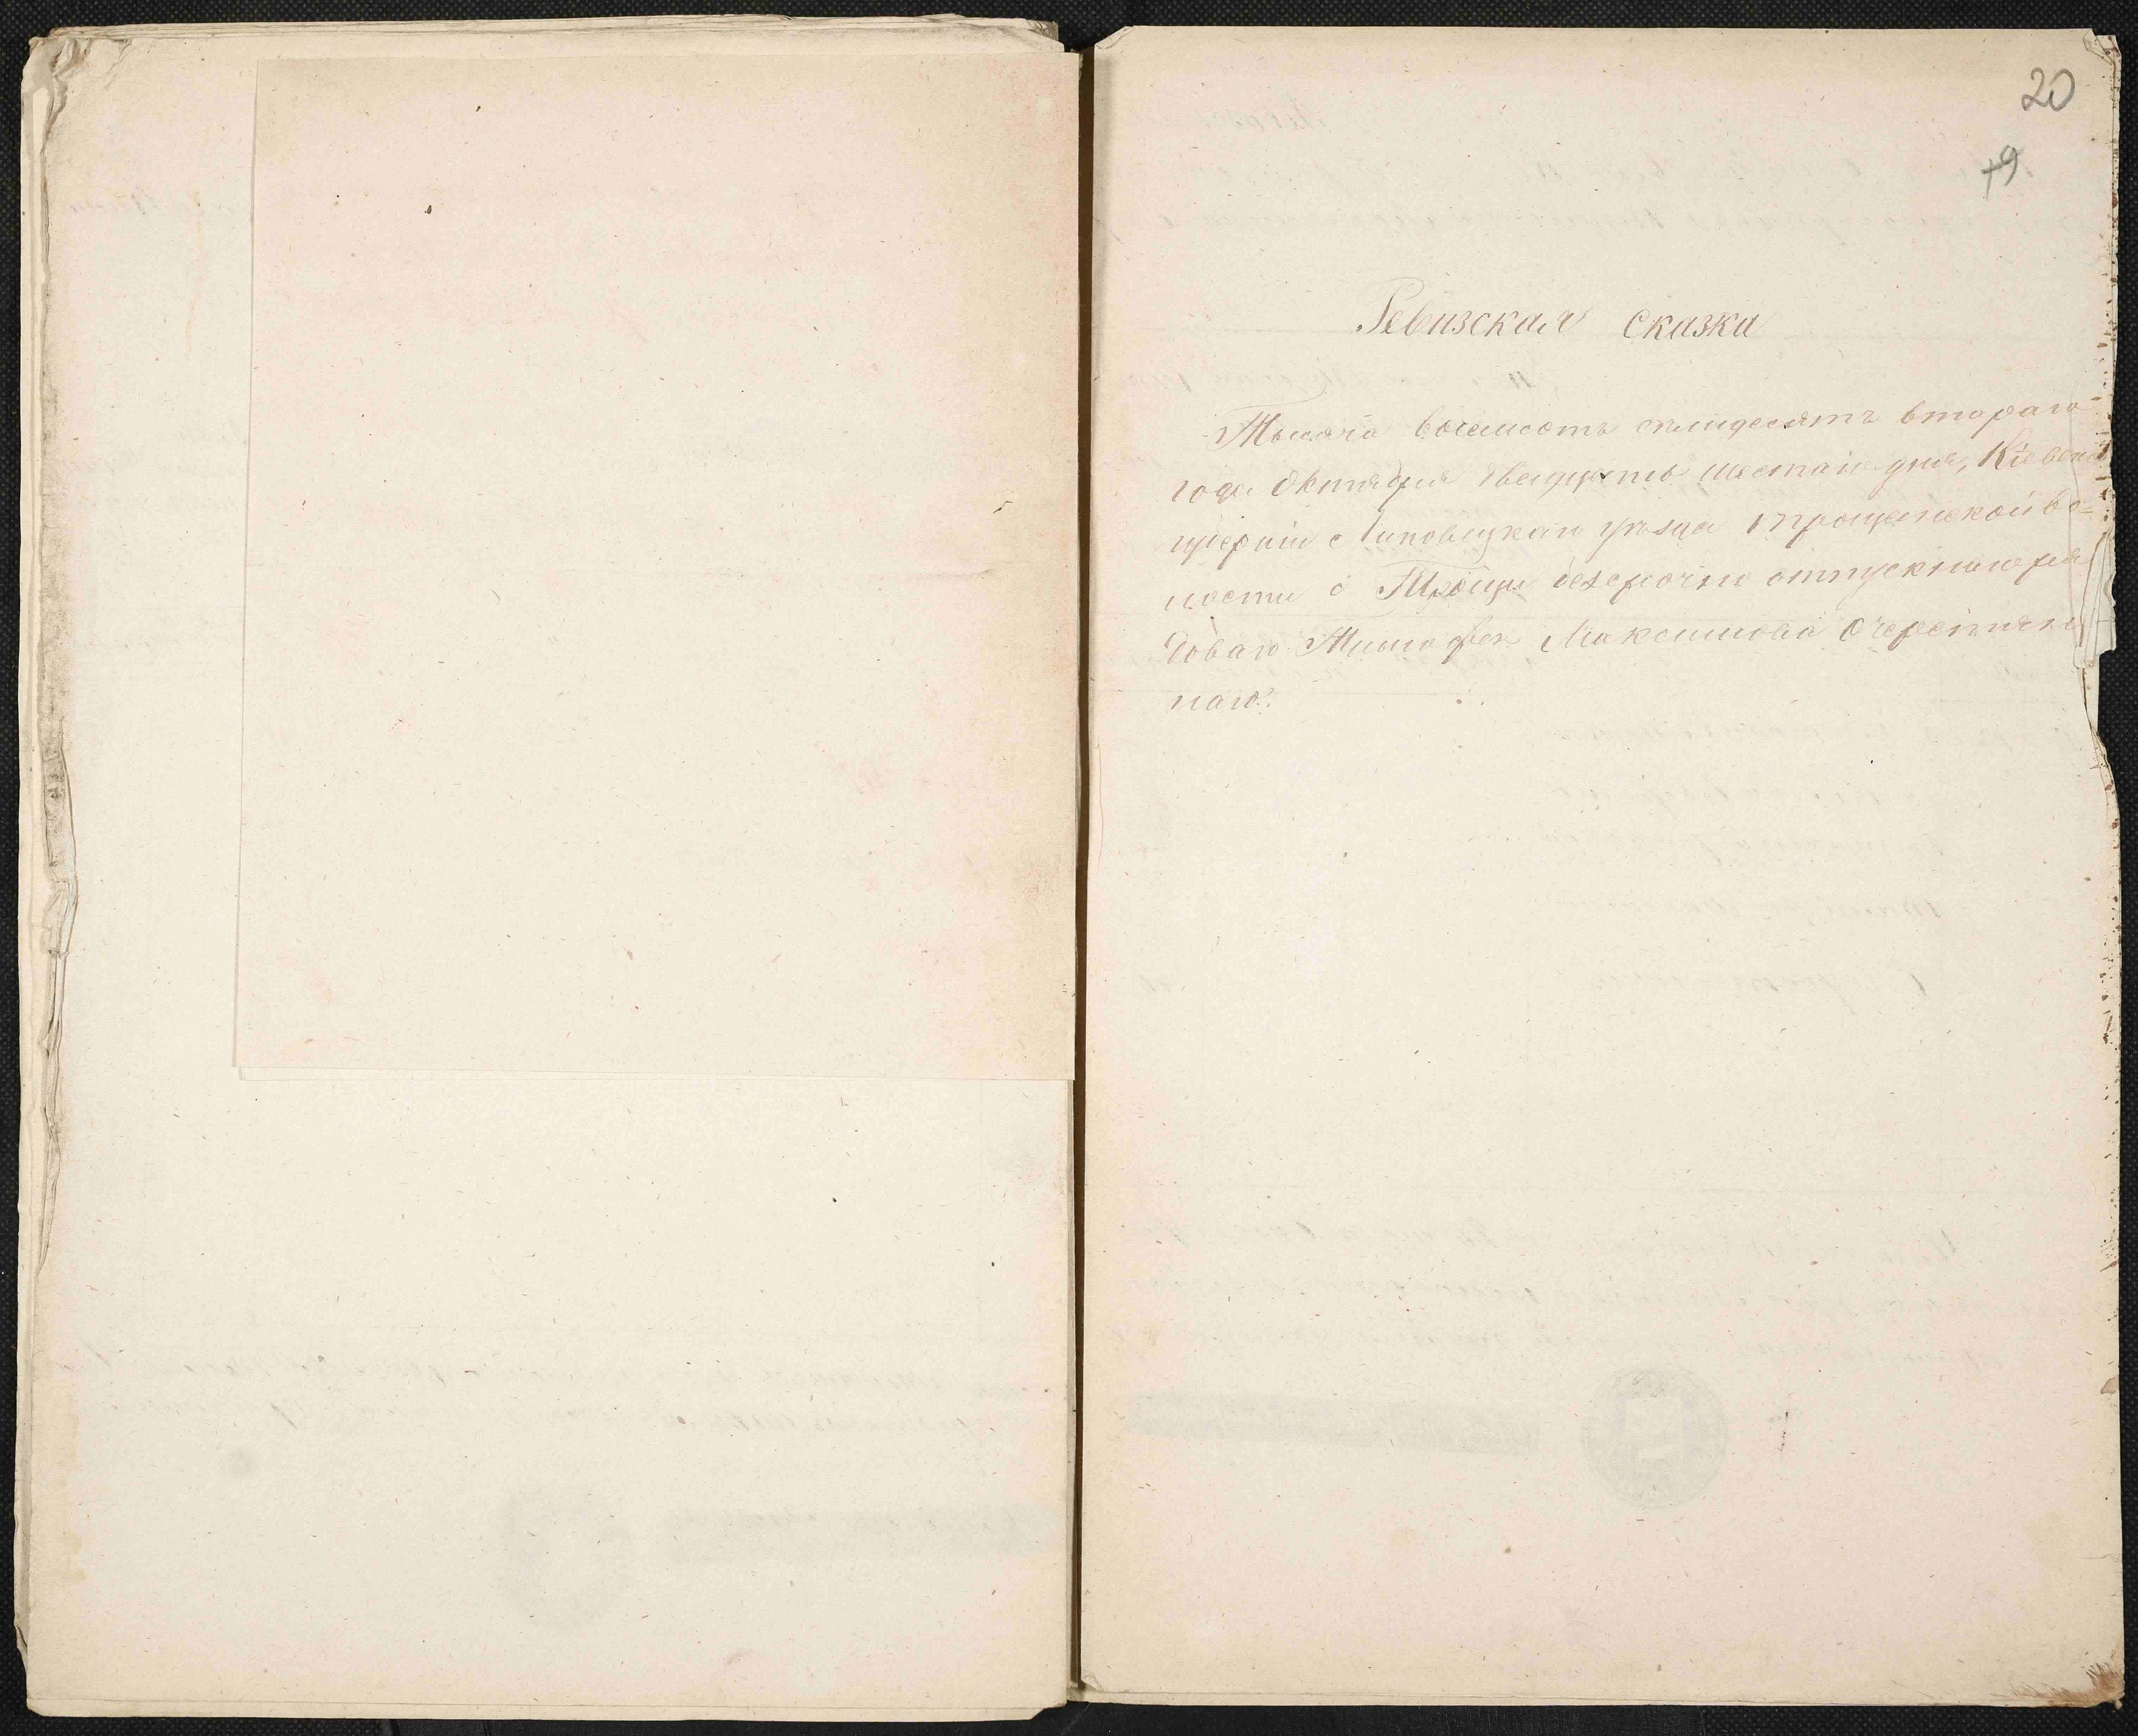 20
19
Ревизская сказка
Тысяча восемсотъ пятдесятъ втораго
года Октября двадцать шестаго дня, Кіевской
губерніи Липовецкаго уѣзда
ности с Трощи безсрочно отпускнаго рядо
ваго Тимофея Максимова Очеретян
наго.